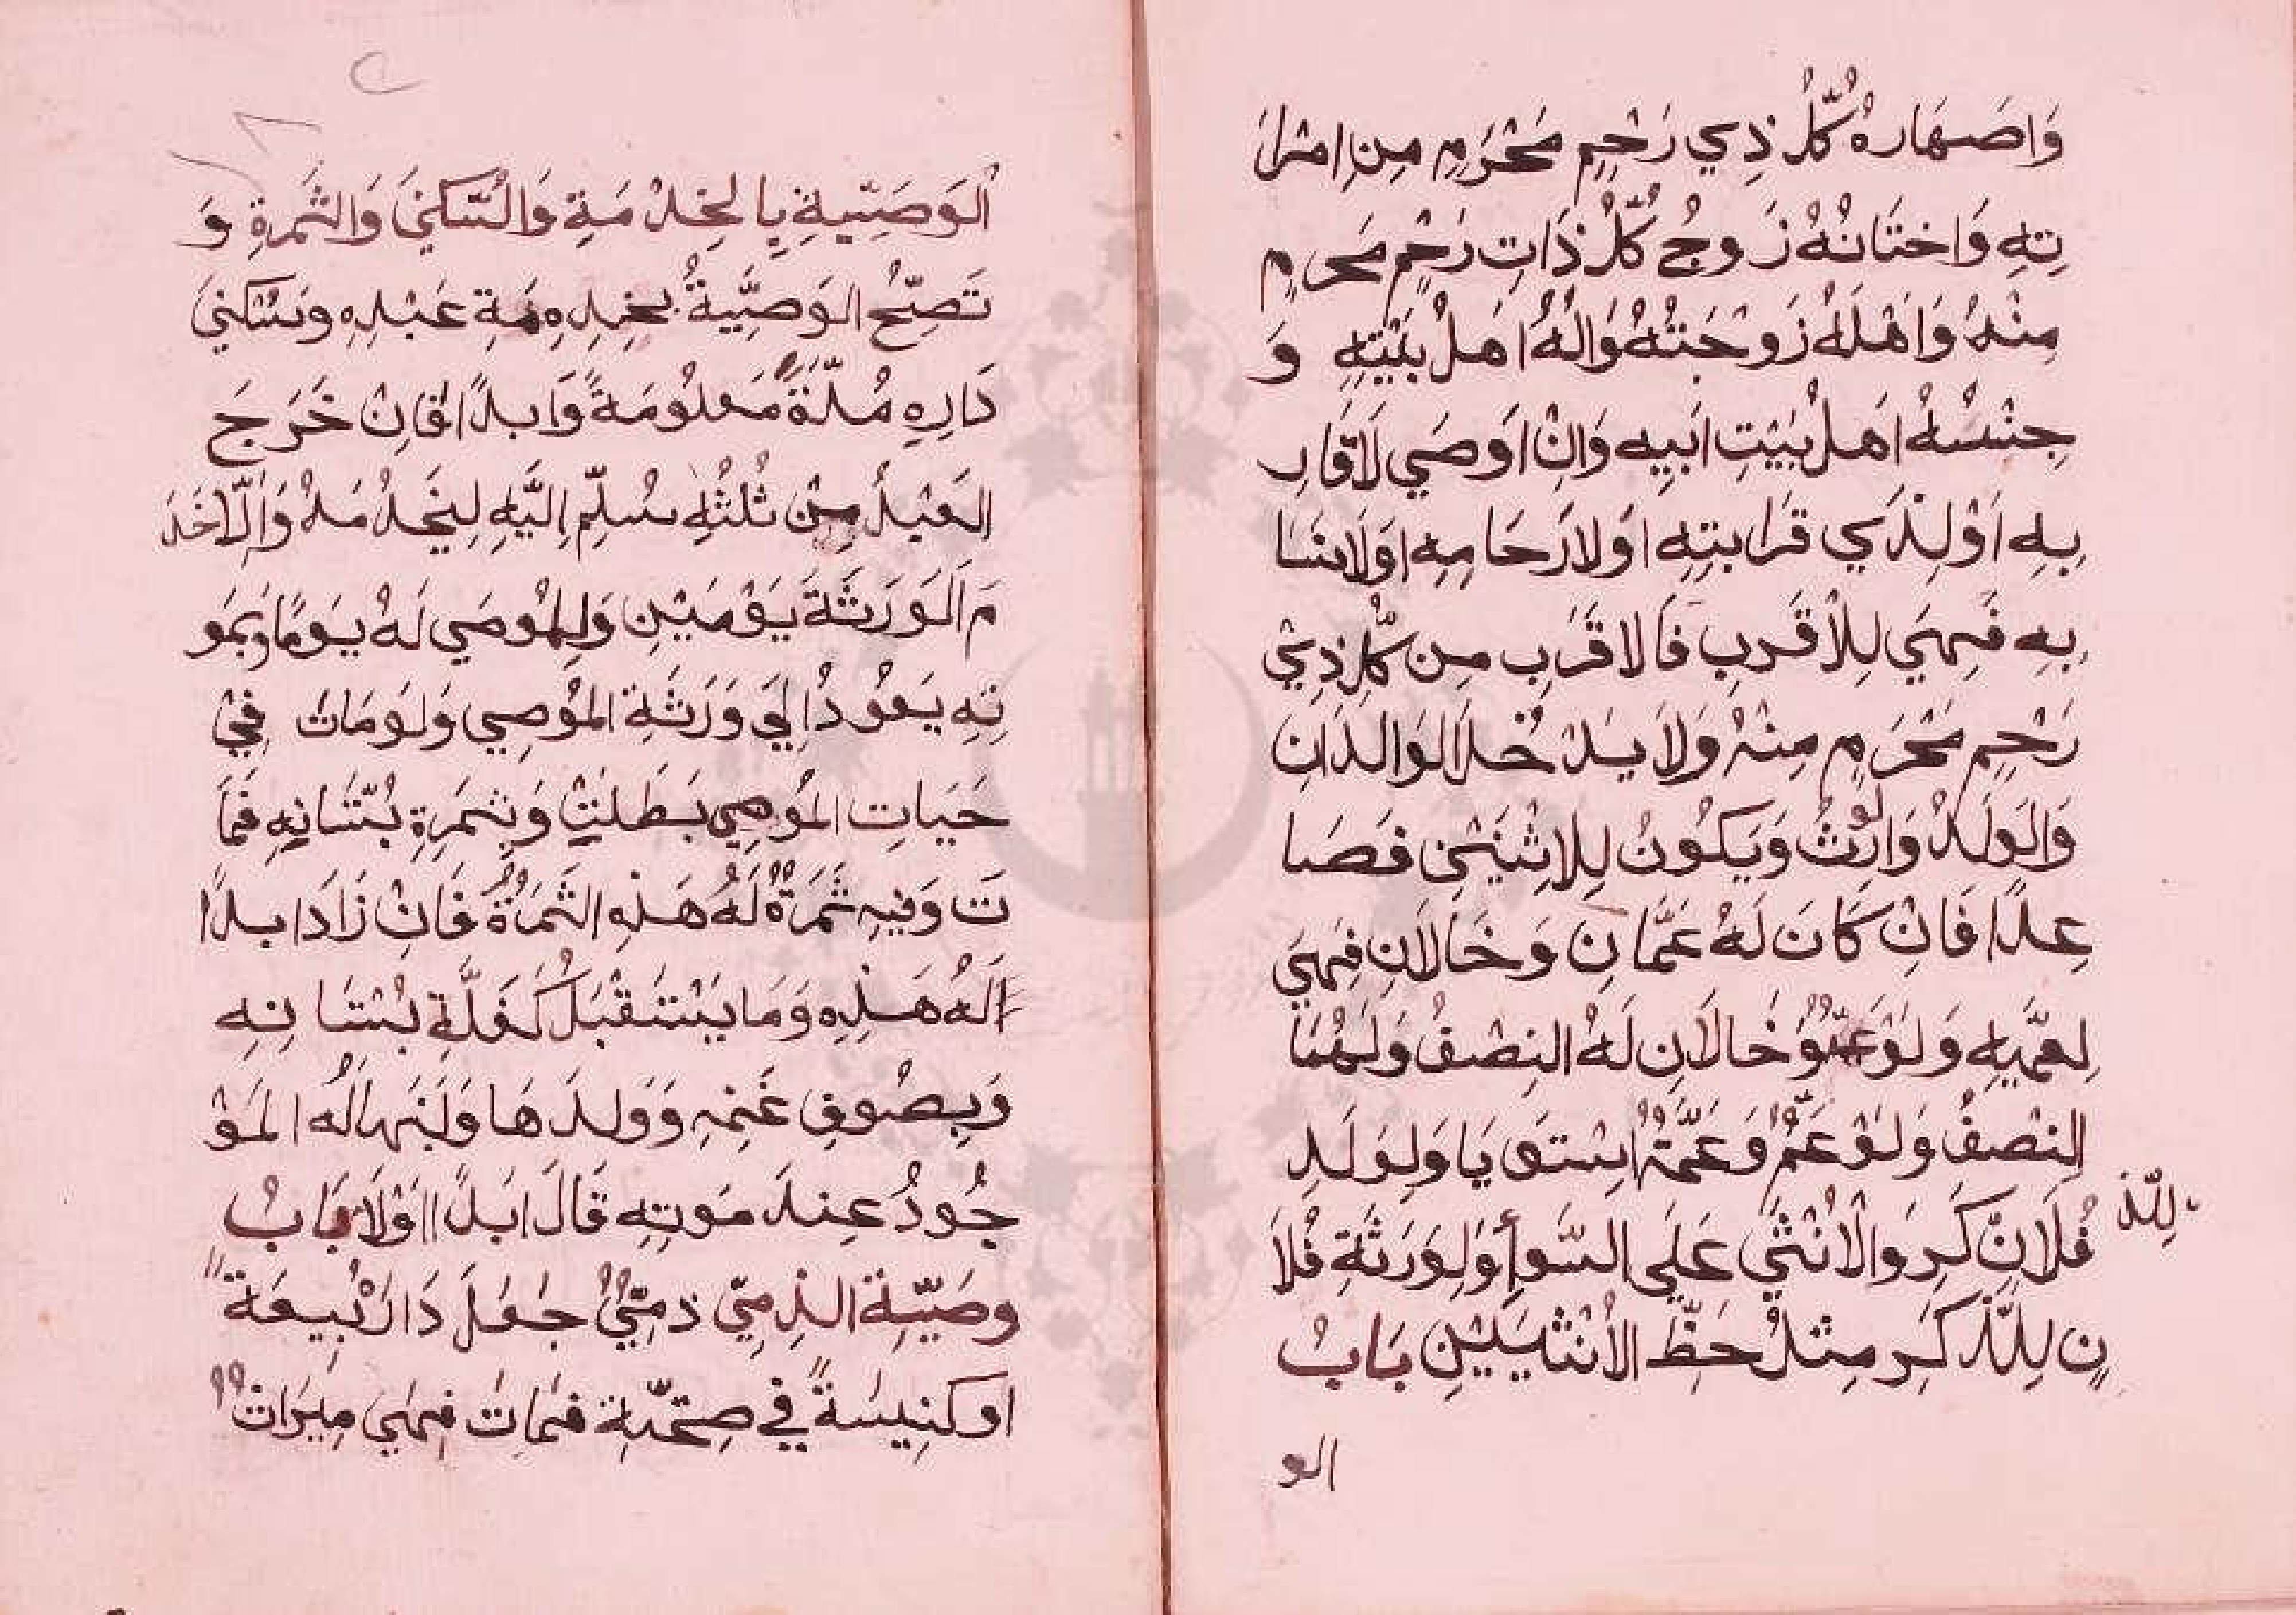 وَاصَهَارهُ كُلُّ ذِي رَحْمٍ مَحْرَمٍ مِنِ امْرَا
تِهِ وَاختَانُهُ زَوجُ كُلُّ ذَاتِ رَحْمٍ مَحرمٍ
مِنْهُ وَاهْلُهُ زَوْجَتُهُ وَالُهُ اهلُ بَيْتِهِ وَ
جِنْسُهُ اهَلُ بَيْتِ ابِيهِ وَانْ اوصَي لَاقَارِ
بِهِ اوْلِذَي قَرَابتِهِ اوَلارَحَامِهِ اوَلانسَا
بِهِ فَهِيَ لِلْأقَربِ فَالاقرَبِ مِن كُلِّ ذِيْ
رَحْمٍ مَحْرَمٍ مِنْهُ وَلَا يَدْخُلُ الوَالدَانِ
وَالوَلَدُ وَلَو وَارِثُ وَيَكوُنُ لِلاِثْنَيْنِ فصَا
عِدًا فَانْ كَانَ لَهُ عَمَّانِ وَخَالَانِ فهِيَ
لِعمَّيهِ وَلوْ عَمٌّ وُخَالَانِ لَهُ النِصْفُ وَلَهُمَا
النِصْفُ وَلوْ عَمٌّ وَعَمَّةٌ اسْتوَيَا وَلِوَلَدِ
فُلَانٍ كَرِ وَالْانْثَي عَلَي السَّوأِ وَلِورَثَةِ فُلَا
لِلذَّ
نٍ لِلذَّكَرِ مِثلُ حَظِّ الأُنْثَيَيْنِ بَابُ
الو
الوَصِيَّةِ بِالخِدْمَةِ وَالسُّكنَي وَالثَمرةِ وَ
تَصِحُّ الوَصِيَّةُ بخِدمَةِ عَبْدِهِ وَسُكنَي
دَارِهِ مُدَّةً مَعلوُمَةً وَابدًا فَانْ خَرَجَ
العَبْدُ مِنْ ثُلُثِهِ سُلِّم اِلَيْهِ لِيَخْدُمَهُ وَاِلَّا خَدَ
مَ الوَرَثَةَ يَوْمَيْنِ وَالمُوصَي لَهُ يَومًا وَبِمَو
تِهِ يَعُودُ اِلَي وَرَثَةِ المُوصِي وَلوَمَاتَ فِيْ
حَيَاتِ المُوصِي بَطَلَتْ وَبِثمَرةِ بُسْتَانِهِ فمَا
تَ وَفِيهِ ثَمَرَةٌ لَهُ هَذِهِ الثَمَرَةُ فَانْ زَادَ ابدًا
لَهُ هَذِهِ وَمَا يُسْتَقْبَلُ كَغَلَّةِ بُسْتَانِهِ
وَبِصُوفِ غَنَمِهِ وَوَلدِهَا وَلَبَنِهَا لَهُ المَوْ
جُودُ عِندَ مَوتِهِ قَالَ ابَدًا اوْلَا بَابُ
وصَيَّةِ الذِمِّيِّ ذِمِّيٌّ جَعَلَ دَارَهُ بِيعَةً
او كنِيسَةً فِي صِحَّتِهِ فمَاتَ فهِيَ مِيرَاثٌ